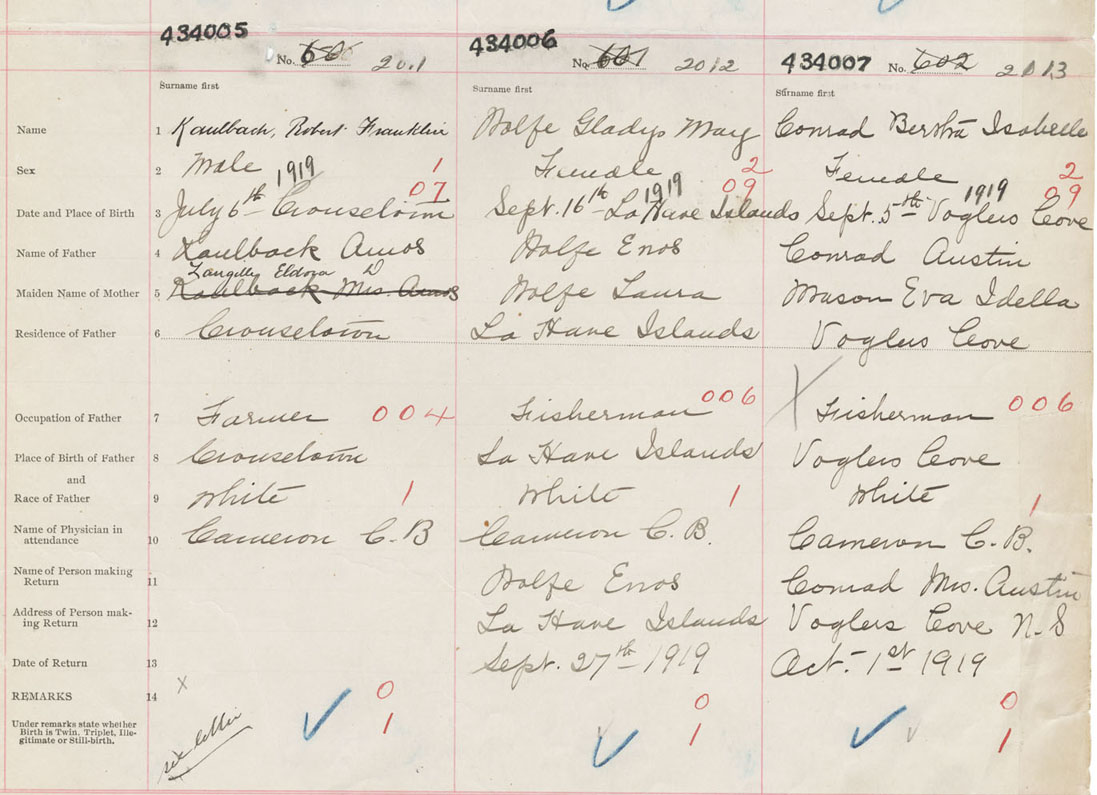 434005 No. 600 2011
434006 No. 601 2012
434007 No. 602 2013
Surname first Surname first Surname first
Name 1 Kaulbach, Robert Franklin Wolfe Gladys May Conrad Bertha Isabelle
Sex 2 Male 1 Female 2 Female 2
1919 07 1919 09 1919 09
Date and Place of Birth 3 July 6th Crousetown Sept. 16th La Have Islands Sept. 5th Voglers Cove
Name of Father 4 Kaulback Amos Wolfe Enos Conrad Austin
Langilly Eldora D
Maiden Name of Mother 5 Kaulback Mrs. Amos Wolfe Laura Mason Eva Idella
Residence of Father 6 Crousetown La Have Islands Voglers Cove
Occupation of Father 7 Farmer 004 Fisherman 006 X Fisherman 006
Place of Birth of Father 8 Crousetown La Have Islands Voglers Cove
and
Race of Father 9 White 1 White 1 White 1
Name of Physician in
attendance 10 Cameron C. B Cameron C. B. Cameron C. B.
Name of Person making
Return 11 Wolfe Enos Conrad Mrs. Austin
Address of Person mak-
ing Return 12 La Have Islands Voglers Cove N. S
Date of Return 13 Sept. 27th 1919 Oct. 1st 1919
REMARKS 14 x 0 0 0
Under remarks state whether
Birth is Twin, Triplet, Ille-
gitimate or Still-birth.
see letter 1 1 1